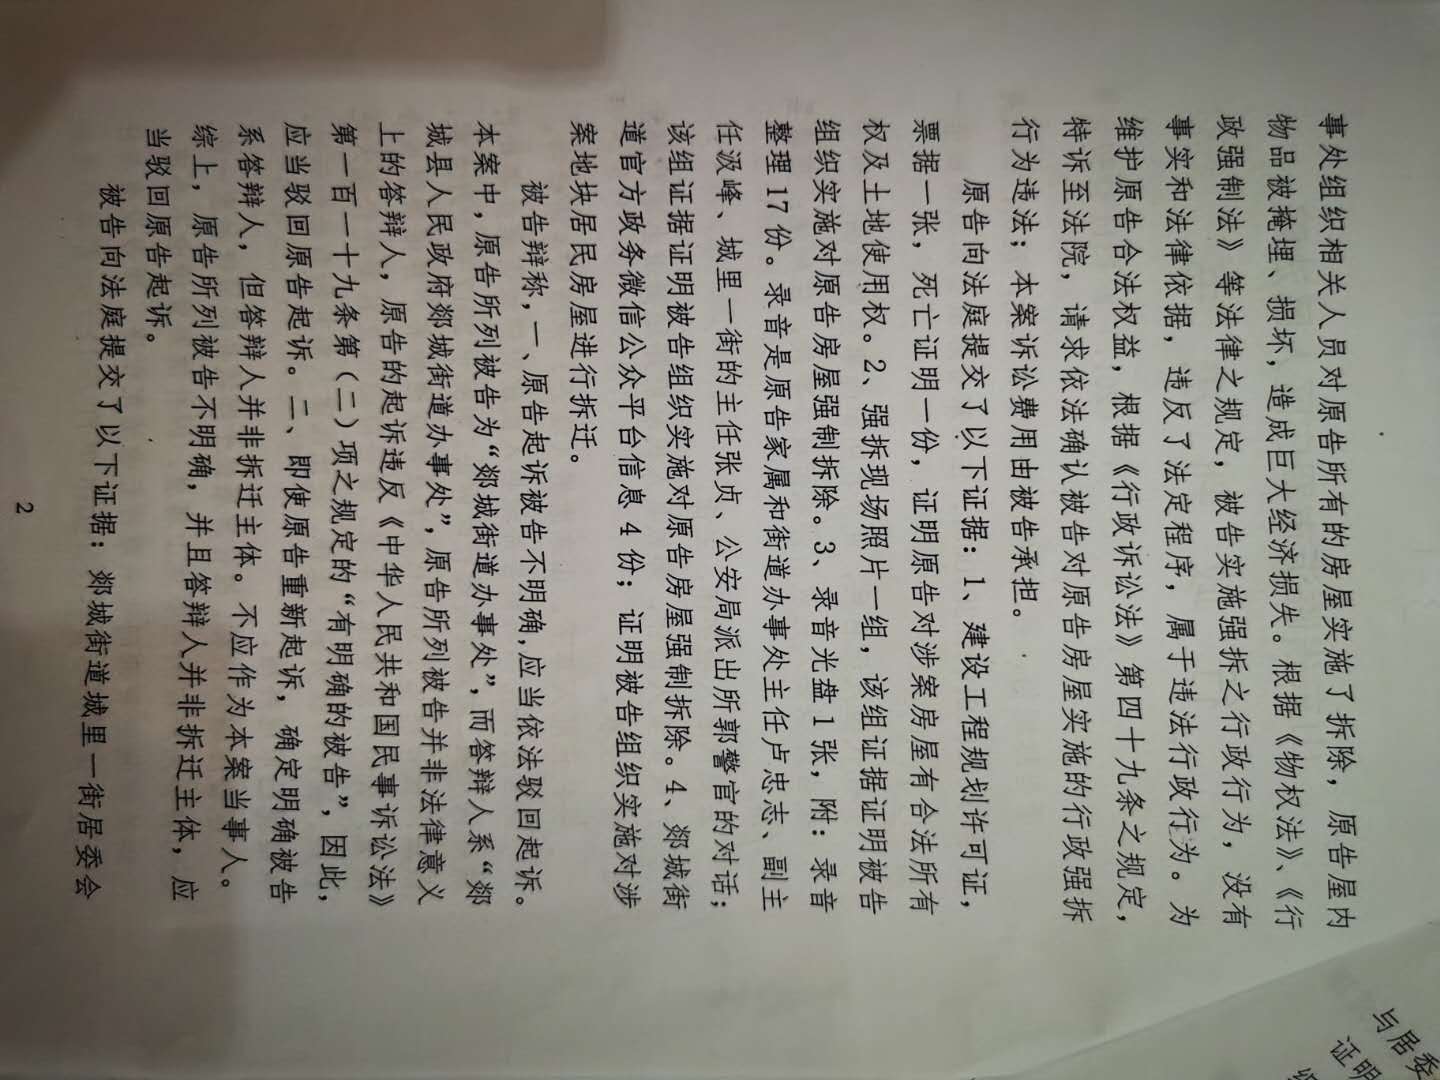 事处组织相关人员对原告所有的房屋实施了拆除，原告屋内
物品被掩埋、损坏，造成巨大经济损失。根据《物权法》、《行
政强制法》等法律之规定，被告实施强拆之行政行为，没有
事实和法律依据，违反了法定程序，属于违法行政行为。为
维护原告合法权益，根据《行政诉讼法》第四十九条之规定，
特诉至法院，请求依法确认被告对原告房屋实施的行政强拆
行为违法；本案诉讼费用由被告承担。
原告向法庭提交了以下证据：1、建设工程规划许可证，
票据一张，死亡证明一份，证明原告对涉案房屋有合法所有
权及土地使用权。2、强拆现场照片一组，该组证据证明被告
组织实施对原告房屋强制拆除。3、录音光盘1张，附：录音
整理17份。录音是原告家属和街道办事处主任卢忠志、副主
任汲峰、城里一街的主任张贞、公安局派出所郭警官的对话；
该组证据证明被告组织实施对原告房屋强制拆除。4、郯城街
道官方政务微信公众平台信息4份；证明被告组织实施对涉
案地块居民房屋进行拆迁。
被告辩称，一、原告起诉被告不明确,应当依法驳回起诉。
本案中，原告所列被告为“郯城街道办事处”，而答辩人系“郯
城县人民政府郯城街道办事处”，原告所列被告并非法律意义
上的答辩人，原告的起诉违反《中华人民共和国民事诉讼法》
第一百一十九条第（二）项之规定的“有明确的被告”，因此，
应当驳回原告起诉。二、即使原告重新起诉，确定明确被告
系答辩人，但答辩人并非拆迁主体。不应作为本案当事人。
综上，原告所列被告不明确，并且答辩人并非拆迁主体，应
当驳回原告起诉。
被告向法庭提交了以下证据：郯城街道城里一街居委会
2
与居委
证明